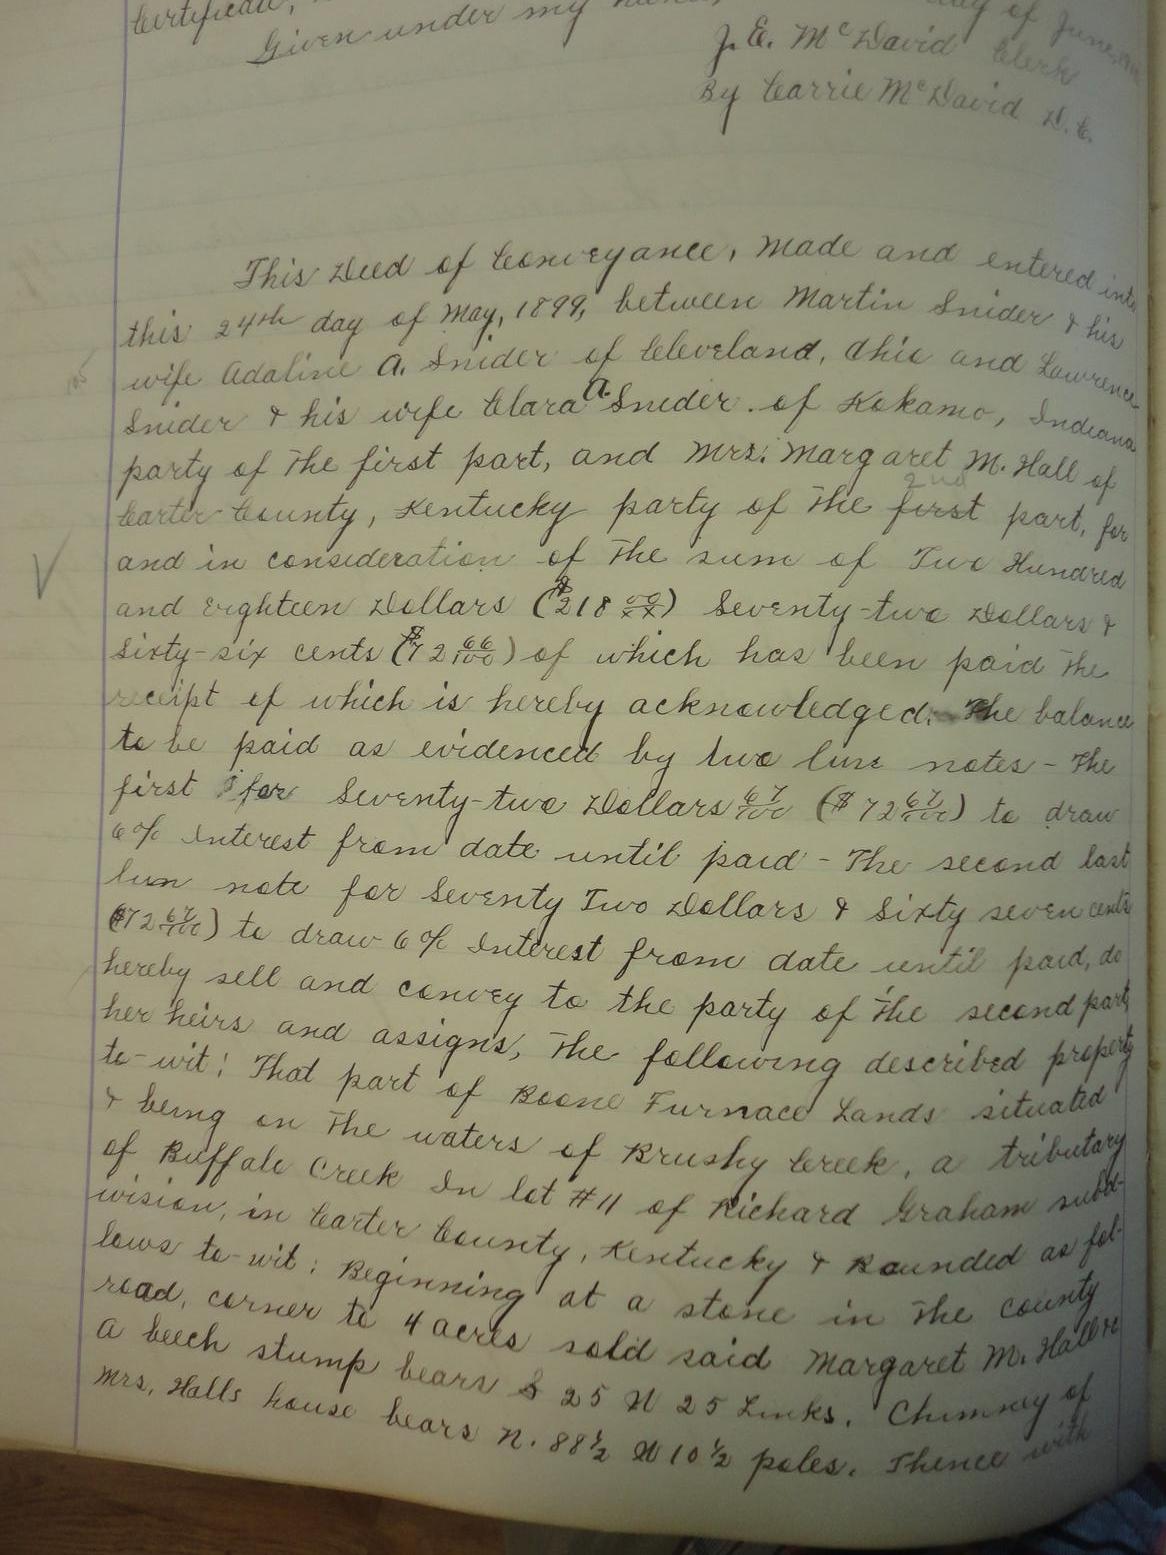 Certificate,
Given under my hand, day of June,
J. E. McDavid Clerk
By Carrie McDavid D.C.
This Deed of Conveyance, made and entered into
this 24th day of May, 1899, between Martin Snider & his
wife Adaline A. Snider of Cleveland, Ohio and Lawrence
Snider & his wife Clara A. Snider. of Kokamo, Indiana
party of the first part, and Mrs. Margaret M. Hall of
2nd
Carter County, Kentucky party of the first part, for
and in consideration of the sum of Two Hundred
and Eighteen Dollars ($218 00/xx) Seventy-two Dollars &
Sixty-six cents ($72 66/100) of which has been paid the
receipt of which is hereby acknowledged. The balance
to be paid as evidenced by two lien notes - The
first for Seventy-two Dollars 67/100 ($72 67/100) to draw
6% Interest from date until paid - The second last
lien note for Seventy Two Dollars & Sixty seven cents
($72 67/100) to draw 6% Interest from date until paid, do
hereby sell and convey to the party of the second part,
her heirs and assigns, the following described property
to-wit: That part of Boone Furnace Lands situated
& being on the waters of Brushy Creek, a tributary
of Buffalo Creek In lot #11 of Richard Graham subdi-
vision, in Carter County, Kentucky & Bounded as fol-
lows to-wit: Beginning at a stone in the county
road, corner to 4 acres sold said Margaret M. Hall
A beech stump bears S 25 W 25 Links. Chimney of
Mrs. Halls house bears N. 88 1/2 W 10 1/2 poles. Thence with